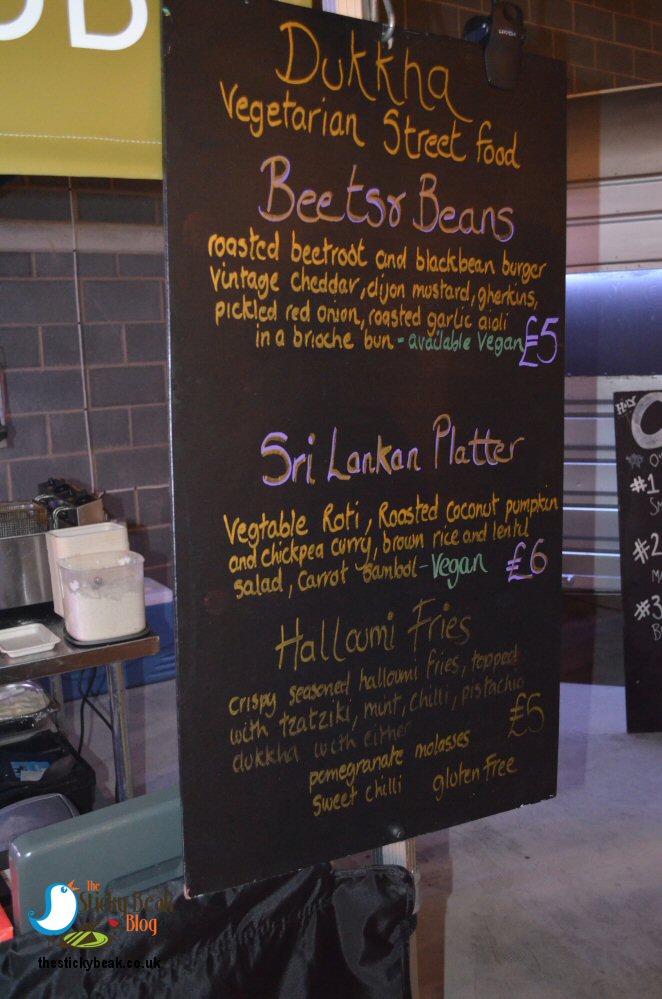 Dukkha
Vegetarian Street food
Beets & Beans
roasted beetroot and blackbean burger
vintage cheddar, dijon mustard, gherkins,
pickled red onion, roasted garlic aioli
in a brioche bun - available Vegan £5
Sri Lankan Platter
Vegtable Roti, Roasted coconut pumpkin
and chickpea curry, brown rice and lentil
salad, Carrot Sambol - Vegan £6
Halloumi Fries
crispy seasoned halloumi fries, topped
with tzatziki, mint, chilli, pistachio
dukkha with either £5
pomegranate molasses
sweet chilli gluten free
#1
#2
#3
The
Sticky Beak
Blog
thestickybeak.co.uk